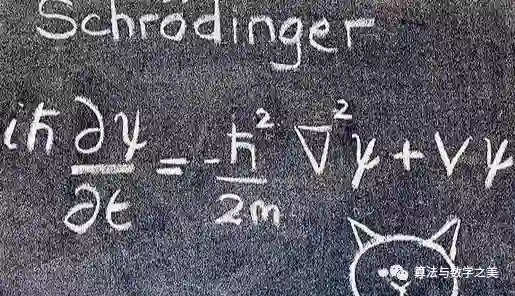 Schrödinger
iħ ∂ψ/∂t = -ħ²/2m ∇²ψ + Vψ
算法与数学之美